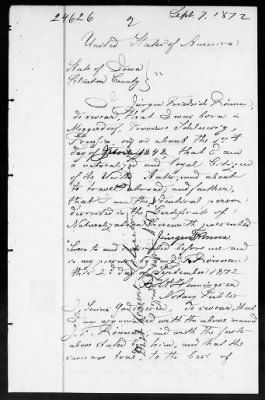 24626 2 Sept. 7, 1872
United States of America
State of Iowa
Clinton County } ss
I Jürgen Friedrich Rönnau
do swear, that I was born in
Province Schleswig,
Prussia, on or about the
day of 1842, that I am
a naturalized and loyal Citizen
of the United States, and about
to travel abroad, and further,
that I am the identical person
described in the Certificate of
Naturalization herewith presented
Jürgen Rönnau
Sworn to and subscribed before me and
in my presence by said Rönnau
this 2d day of September 1872
Notary Public
I do swear, that
I am acquainted with the above named
J. F. Rönnau, and with the facts
above stated by him, and that the
same are true, to the best of